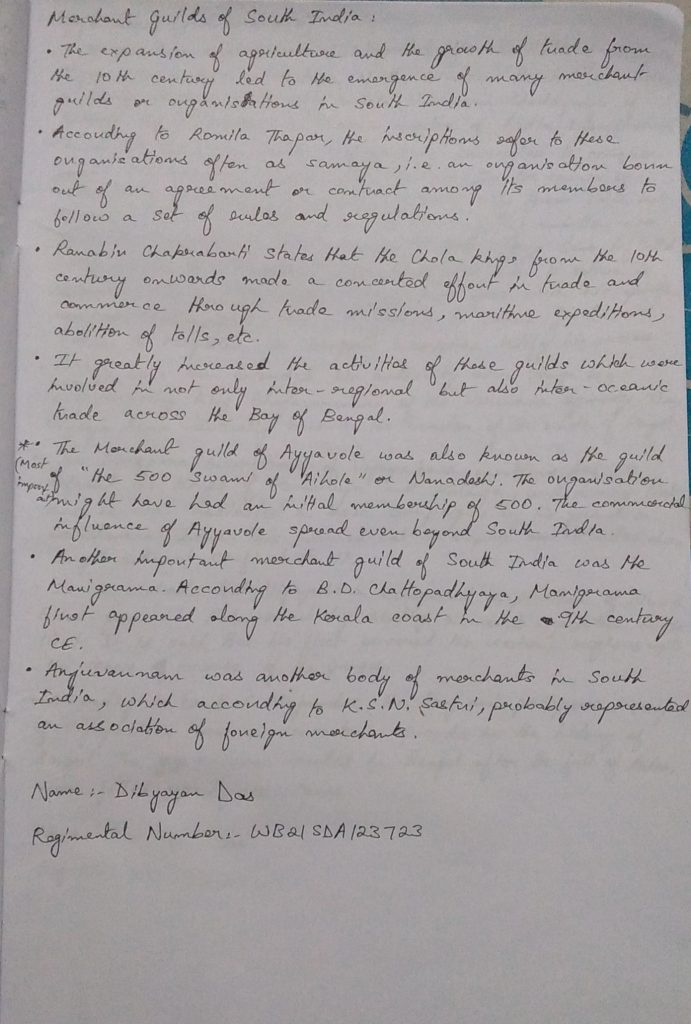 Merchant Guilds of South India :
• The expansion of agriculture and the growth of trade from
the 10th century led to the emergence of many merchant
guilds or organisations in South India.
• According to Romila Thapar, the inscriptions refer to these
organisations often as samaya, i.e. an organisation born
out of an agreement or contract among its members to
follow a set of rules and regulations.
• Ranabir Chakrabarti states that the Chola kings from the 10th
century onwards made a concerted effort in trade and
commerce through trade missions, maritime expeditions,
abolition of tolls, etc.
• It greatly increased the activities of these guilds which were
involved in not only inter-regional but also inter-oceanic
trade across the Bay of Bengal.
* • The Merchant guild of Ayyavole was also known as the guild
(Most important) of "the 500 Swami of "Aihole" or Nanadeshi. The organisation
might have had an initial membership of 500. The commercial
influence of Ayyavole spread even beyond South India.
• Another important merchant guild of South India was the
Manigrama. According to B.D. Chattopadhyaya, Manigrama
first appeared along the Kerala coast in the 9th century
CE.
• Anjuvannam was another body of merchants in South
India, which according to K.S.N. Sastri, probably represented
an association of foreign merchants.
Name :- Dibyayan Das
Regimental Number :- WB21SDA123723